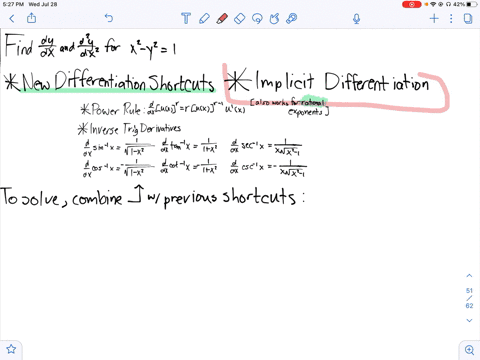 5:27 PM Wed Jul 28
42%
Find dy/dx and d²y/dx² for x²-y²=1
*New Differentiation Shortcuts *Implicit Differentiation
*Power Rule: d/dx[u(x)]^r = r[u(x)]^(r-1) u'(x) [also works for rational exponents]
*Inverse Trig Derivatives
d/dx sin⁻¹x = 1/√(1-x²) d/dx tan⁻¹x = 1/(1+x²) d/dx sec⁻¹x = 1/(x√(x²-1))
d/dx cos⁻¹x = -1/√(1-x²) d/dx cot⁻¹x = -1/(1+x²) d/dx csc⁻¹x = -1/(x√(x²-1))
To solve, combine ↑ w/ previous shortcuts:
51
/
62